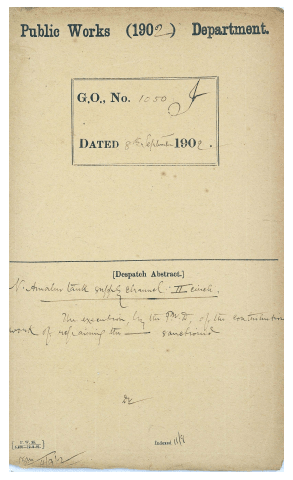 Public Works (1902) Department.
G.O., No. 1050 I
DATED 8th September 1902.
[Despatch Abstract.]
tank supply channel II circle.
The execution, by the P.W.D., of the construction
work of repairing the — sanctioned
Indexed